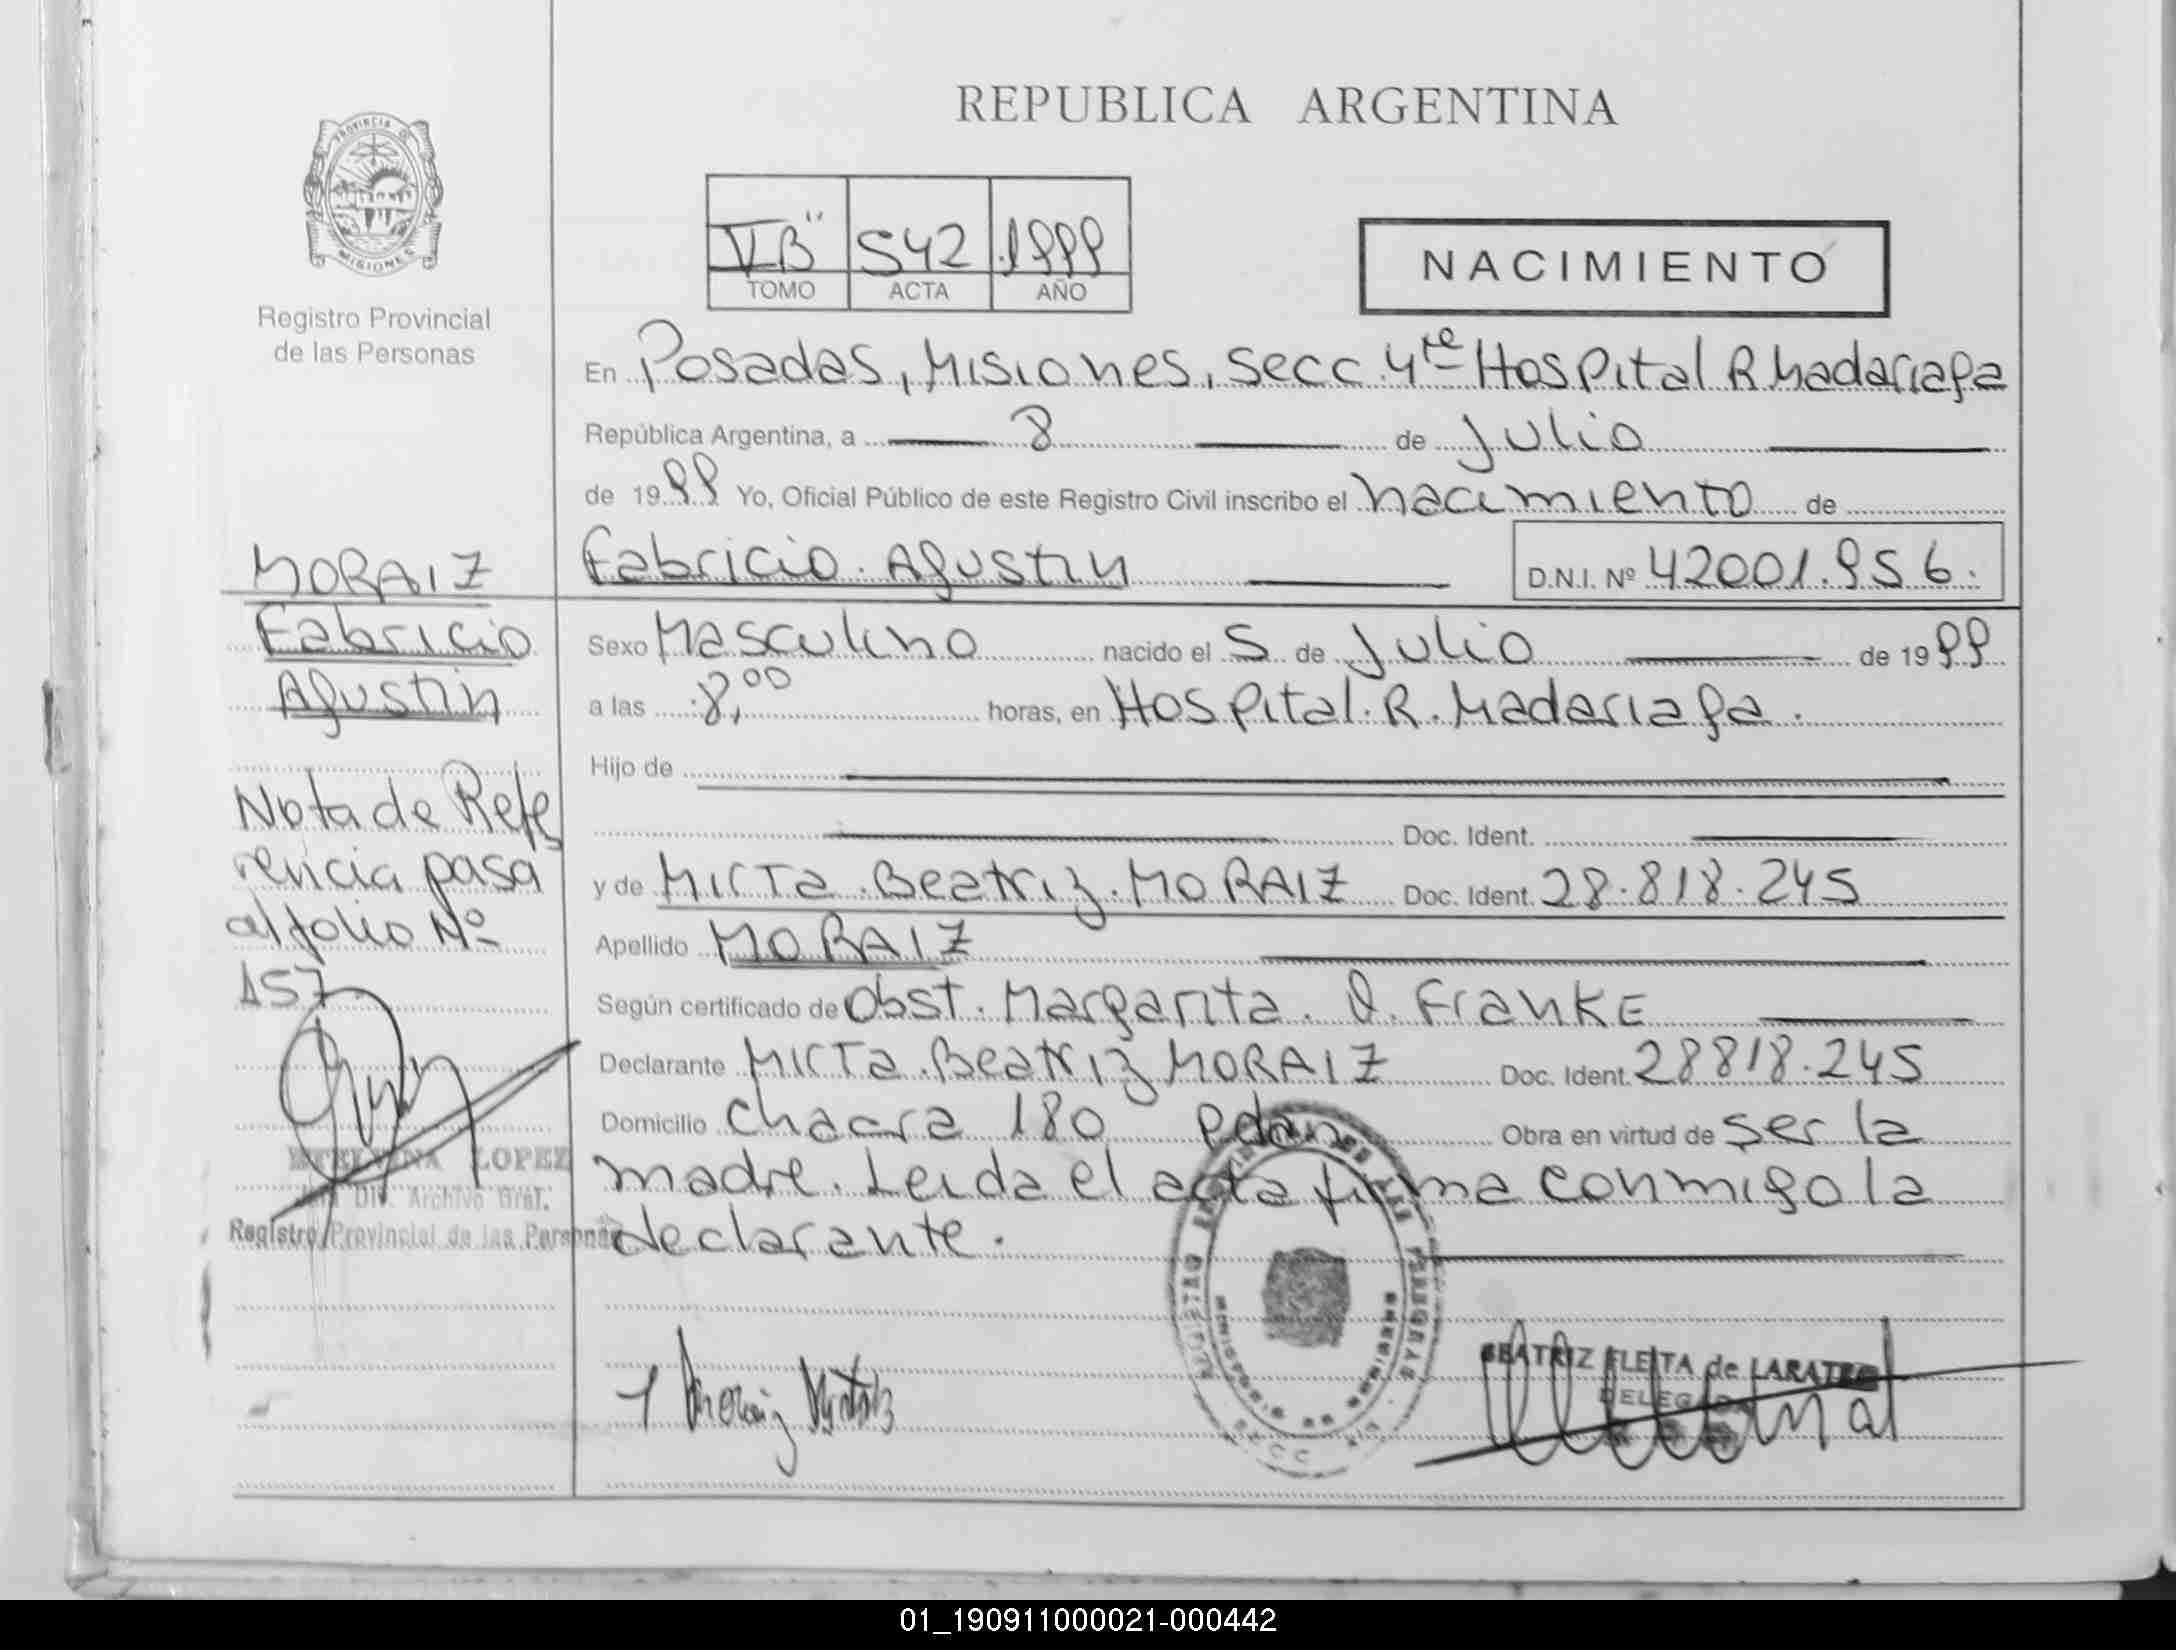 REPUBLICA ARGENTINA
PROVINCIA DE
MISIONES
Registro Provincial
de las Personas
V B" 542 1999
TOMO ACTA AÑO
NACIMIENTO
En Posadas, Misiones, Secc. 4te Hospital R Madariaga
República Argentina, a 8 de Julio
de 1999 Yo, Oficial Público de este Registro Civil inscribo el nacimiento de
Fabricio Agustin D.N.I. Nº 42001.956.
Sexo Masculino nacido el 5 de Julio de 1999
a las 8,00 horas, en Hospital R. Madariaga.
Hijo de
Doc. Ident.
y de Mirta Beatriz MORAIZ Doc. Ident. 28.818.245
Apellido MORAIZ
Según certificado de Obst. Margarita. Franke
Declarante Mirta Beatriz MORAIZ Doc. Ident. 28818.245
Domicilio Chacra 180 Obra en virtud de ser la
madre. Leida el acta firma conmigo la
declarante.
MORAIZ
Fabricio
Agustin
Nota de Refe
rencia pasa
al folio Nº
157
LOPEZ
Div. Archivo Gral.
Registro Provincial de las Personas
BEATRIZ FLEITA de
01_190911000021-000442